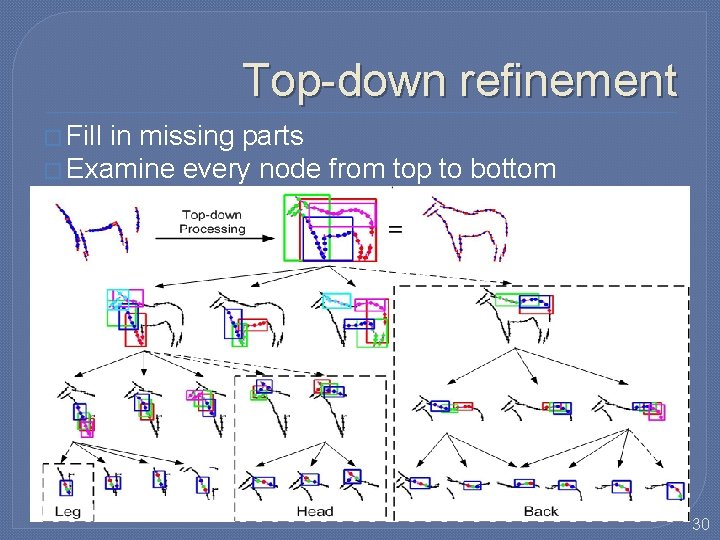 Top-down refinement
Fill in missing parts
Examine every node from top to bottom
Top-down
Processing
=
Leg
Head
Back
30